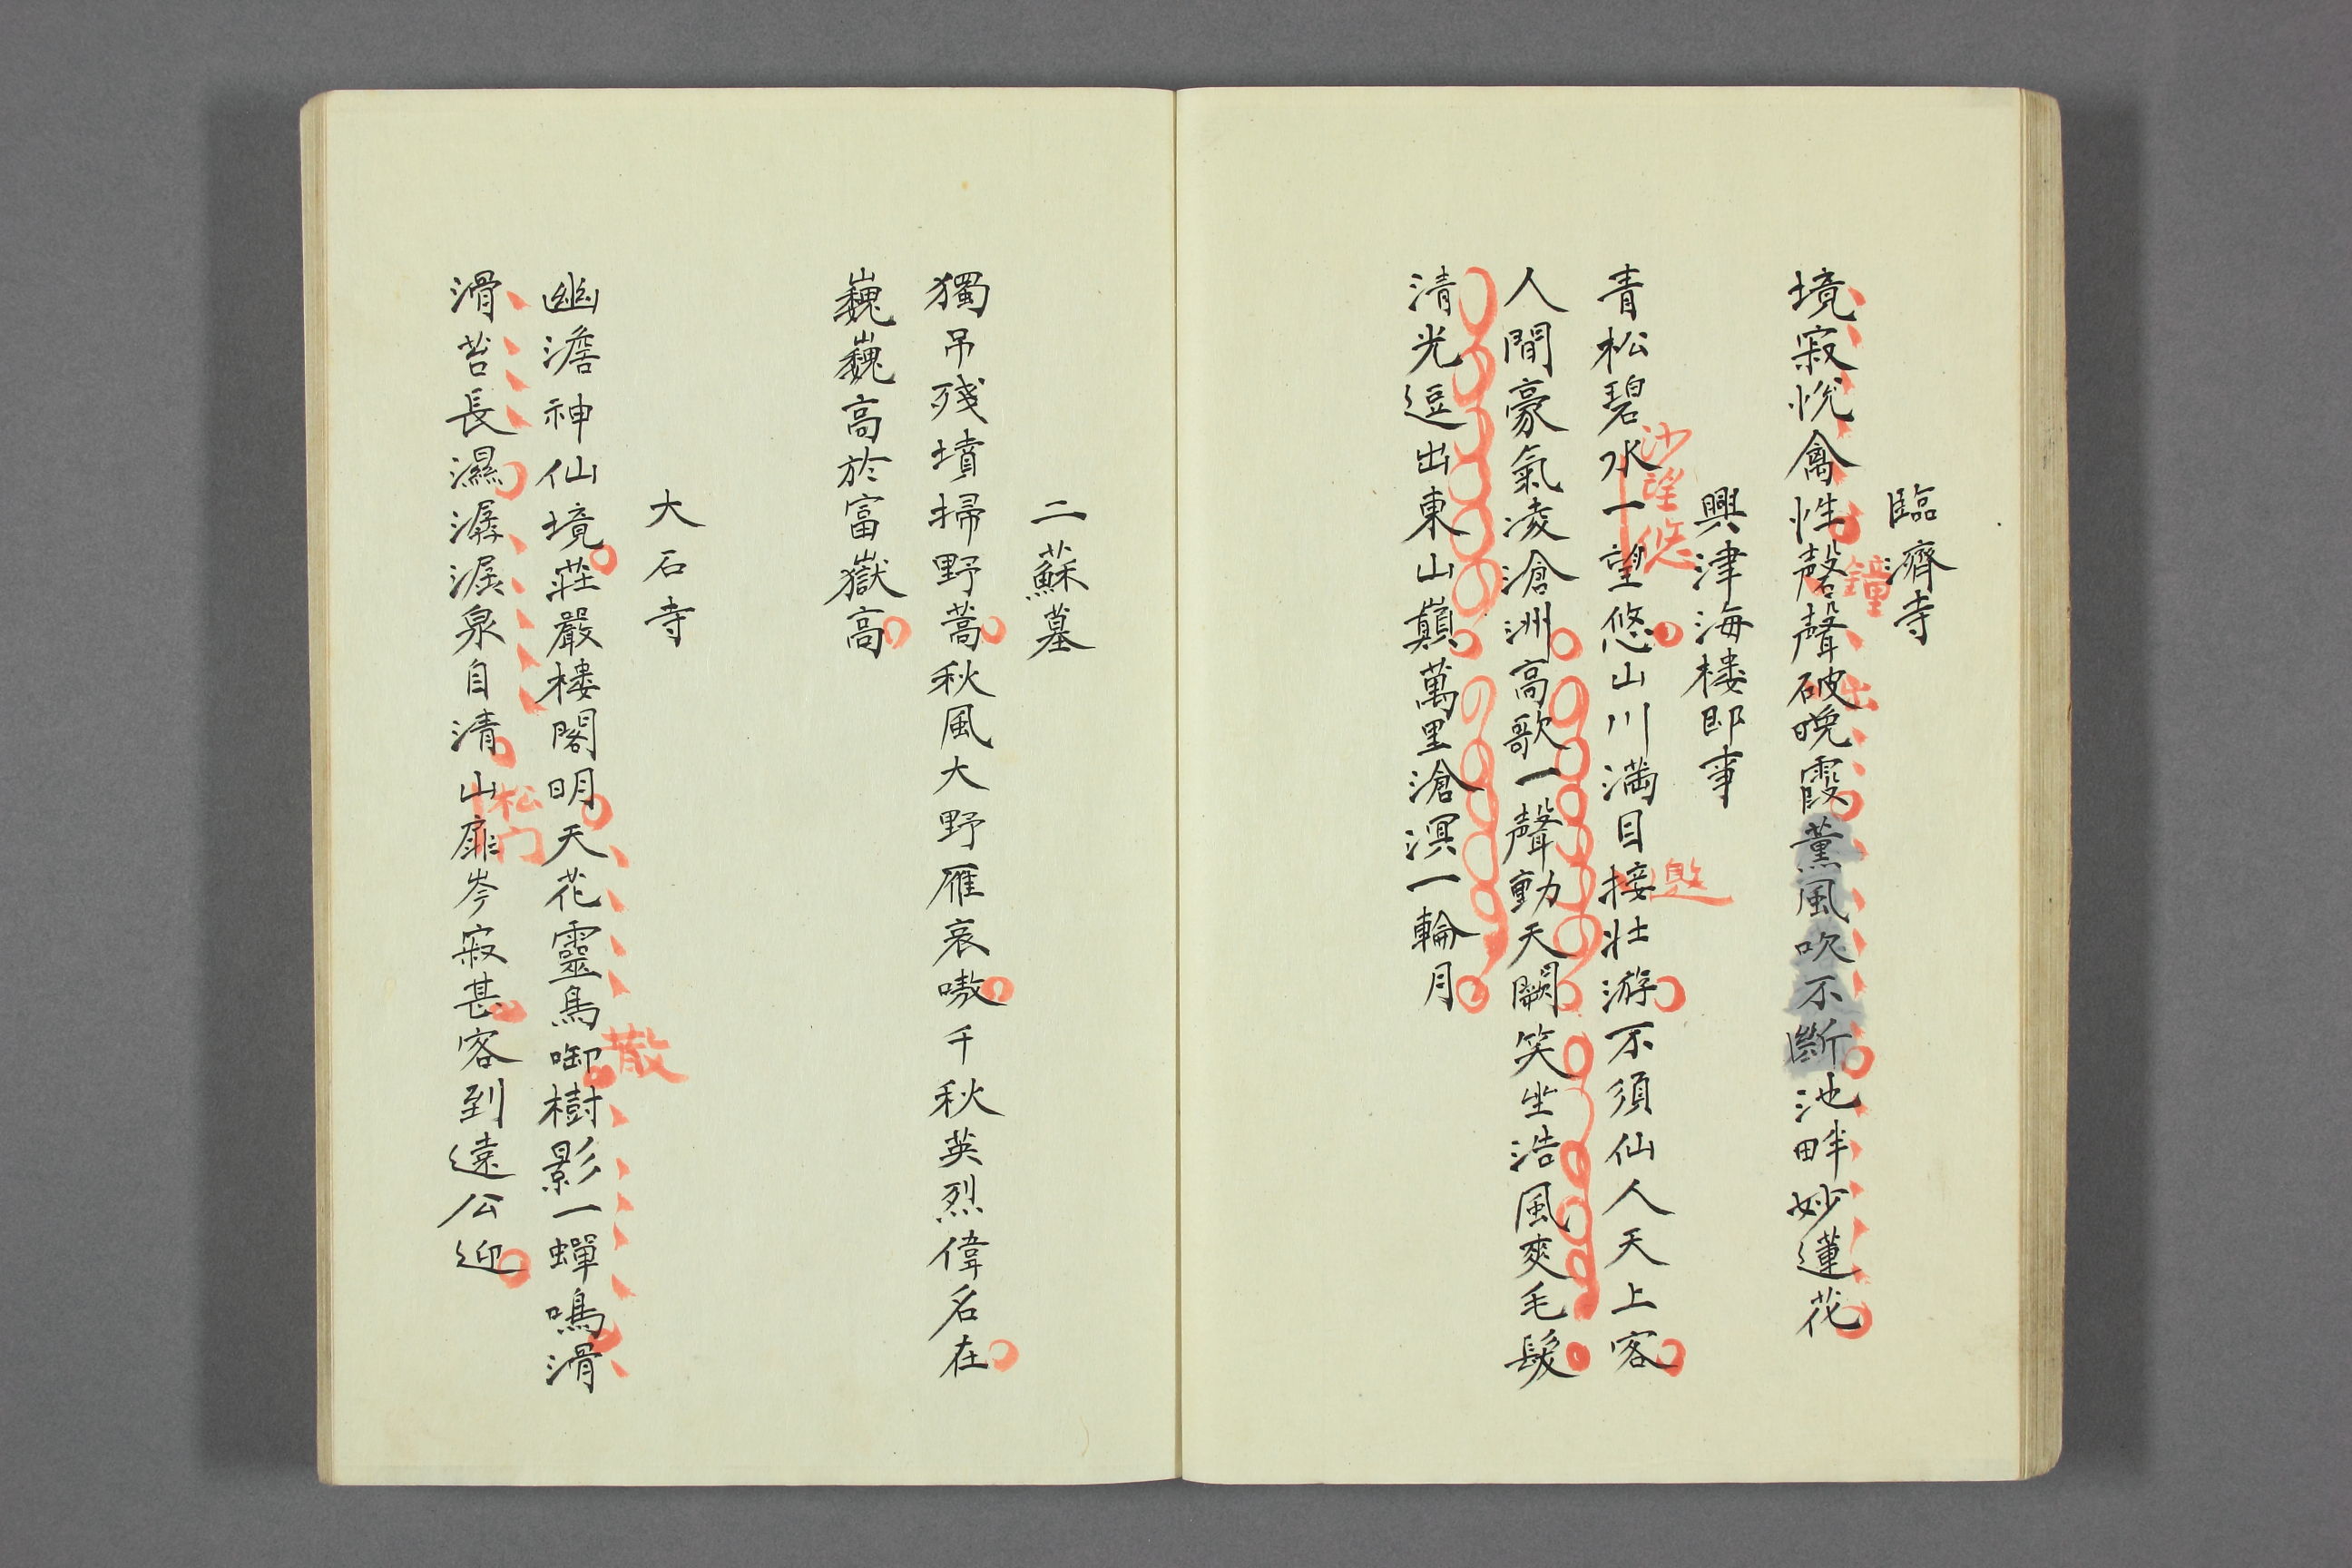 臨濟寺
境寂悅禽性磬聲破晚霞薰風吹不斷池畔妙蓮花
鐘
出
興津海樓即事
青松碧水一望悠山川満目接壮游不須仙人天上客
沙望悠
邀
人間豪氣凌滄洲高歌一聲動天闕笑坐浩風爽毛髮
清光逗出東山巔萬里滄溟一輪月
二蘇墓
獨吊殘墳掃野蒿秋風大野雁哀嗷千秋英烈偉名在
巍巍高於富嶽高
大石寺
幽澹神仙境莊嚴樓閣明天花靈鳥啣樹影一蟬鳴滑
散
滑苔長濕潺湲泉自清山扉岑寂甚客到遠公迎
松门